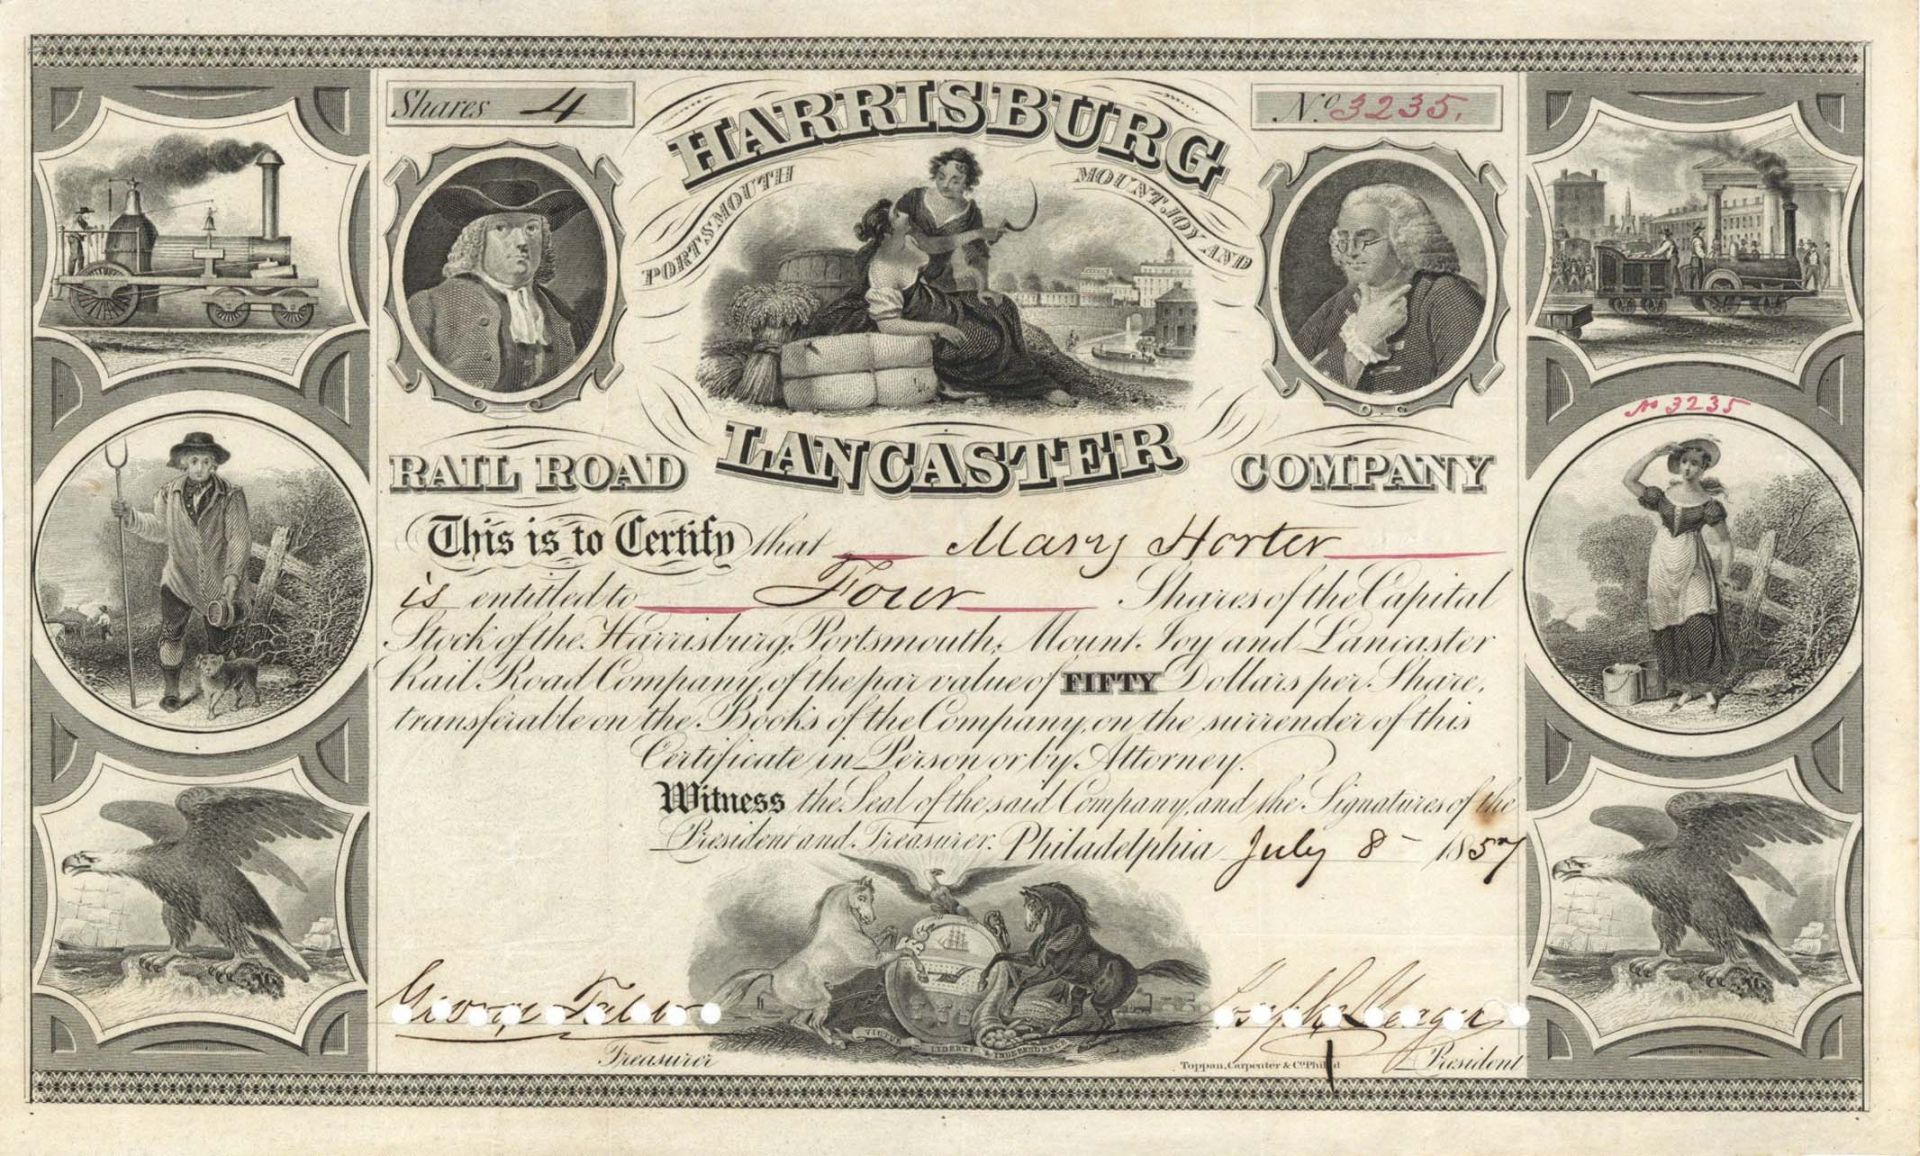 Shares 4
No. 3235.
HARRISBURG
PORTSMOUTH
MOUNT JOY AND
LANCASTER
RAIL ROAD
COMPANY
No 3235
This is to Certify that Mary Horter
is entitled to Four Shares of the Capital
Stock of the Harrisburg, Portsmouth, Mount Joy and Lancaster
Rail Road Company, of the par value of FIFTY Dollars per Share,
transferable on the Books of the Company, on the surrender of this
Certificate in Person or by Attorney.
Witness the Seal of the said Company, and the Signatures of the
President and Treasurer. Philadelphia July 8 - 1857
VIRTUE LIBERTY & INDEPENDENCE
George Taber
Treasurer
Toppan, Carpenter & Co. Phila
Joseph
President